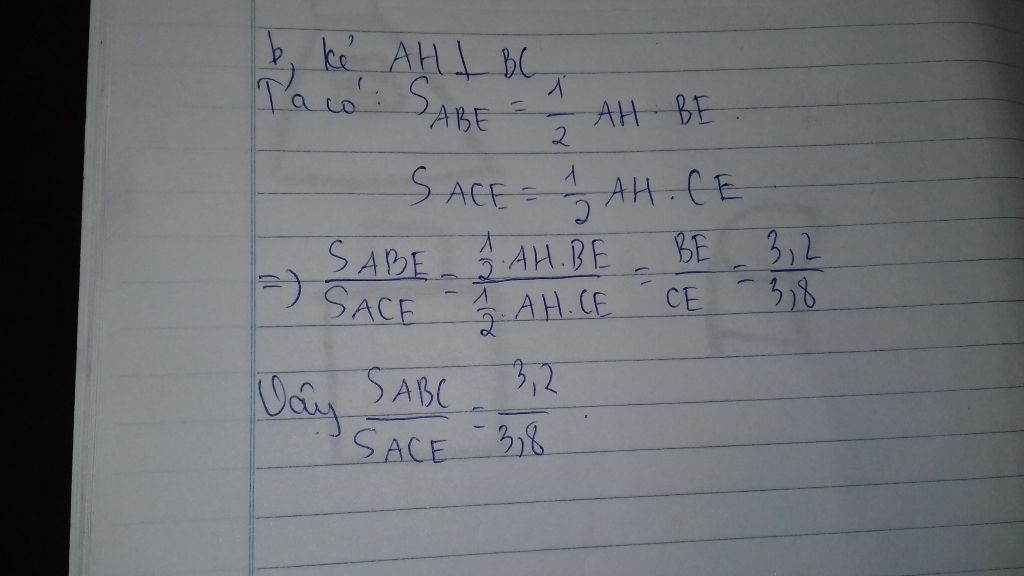 b, kẻ AH ⊥ BC
Ta có: S ABE = 1/2 AH . BE.
S ACE = 1/2 AH . CE
=> S ABE / S ACE = (1/2 . AH . BE) / (1/2 . AH . CE) = BE / CE = 3,2 / 3,8
Vậy S ABC / S ACE = 3,2 / 3,8 .